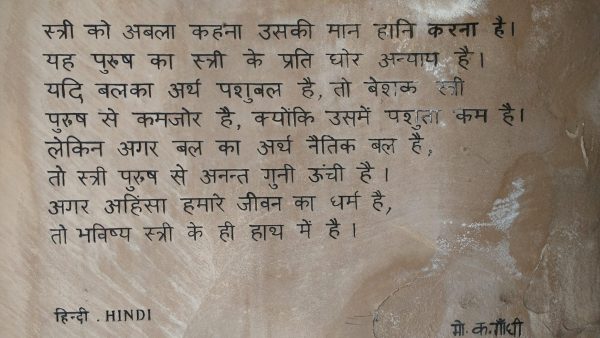 स्त्री को अबला कहना उसकी मान हानि करना है।
यह पुरुष का स्त्री के प्रति घोर अन्याय है।
यदि बलका अर्थ पशुबल है, तो बेशक स्त्री
पुरुष से कमजोर है, क्योंकि उसमें पशुता कम है।
लेकिन अगर बल का अर्थ नैतिक बल है,
तो स्त्री पुरुष से अनन्त गुनी ऊंची है।
अगर अहिंसा हमारे जीवन का धर्म है,
तो भविष्य स्त्री के ही हाथ में है।
हिन्दी . HINDI
मो. क. गाँधी